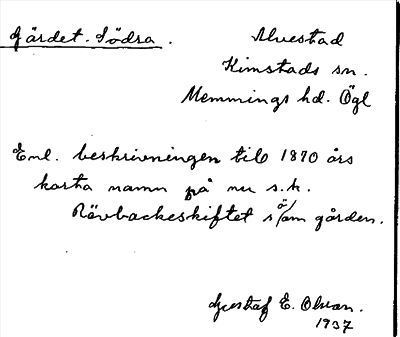 Gärdet. Södra.
Alvestad
Kimstads sn.
Memmings hd. Ögl
Enl. beskrivningen till 1870 års
karta namn på nu s.k.
Rävbackeskiftet s/öm gården.
Gustaf E. Olsson.
1937